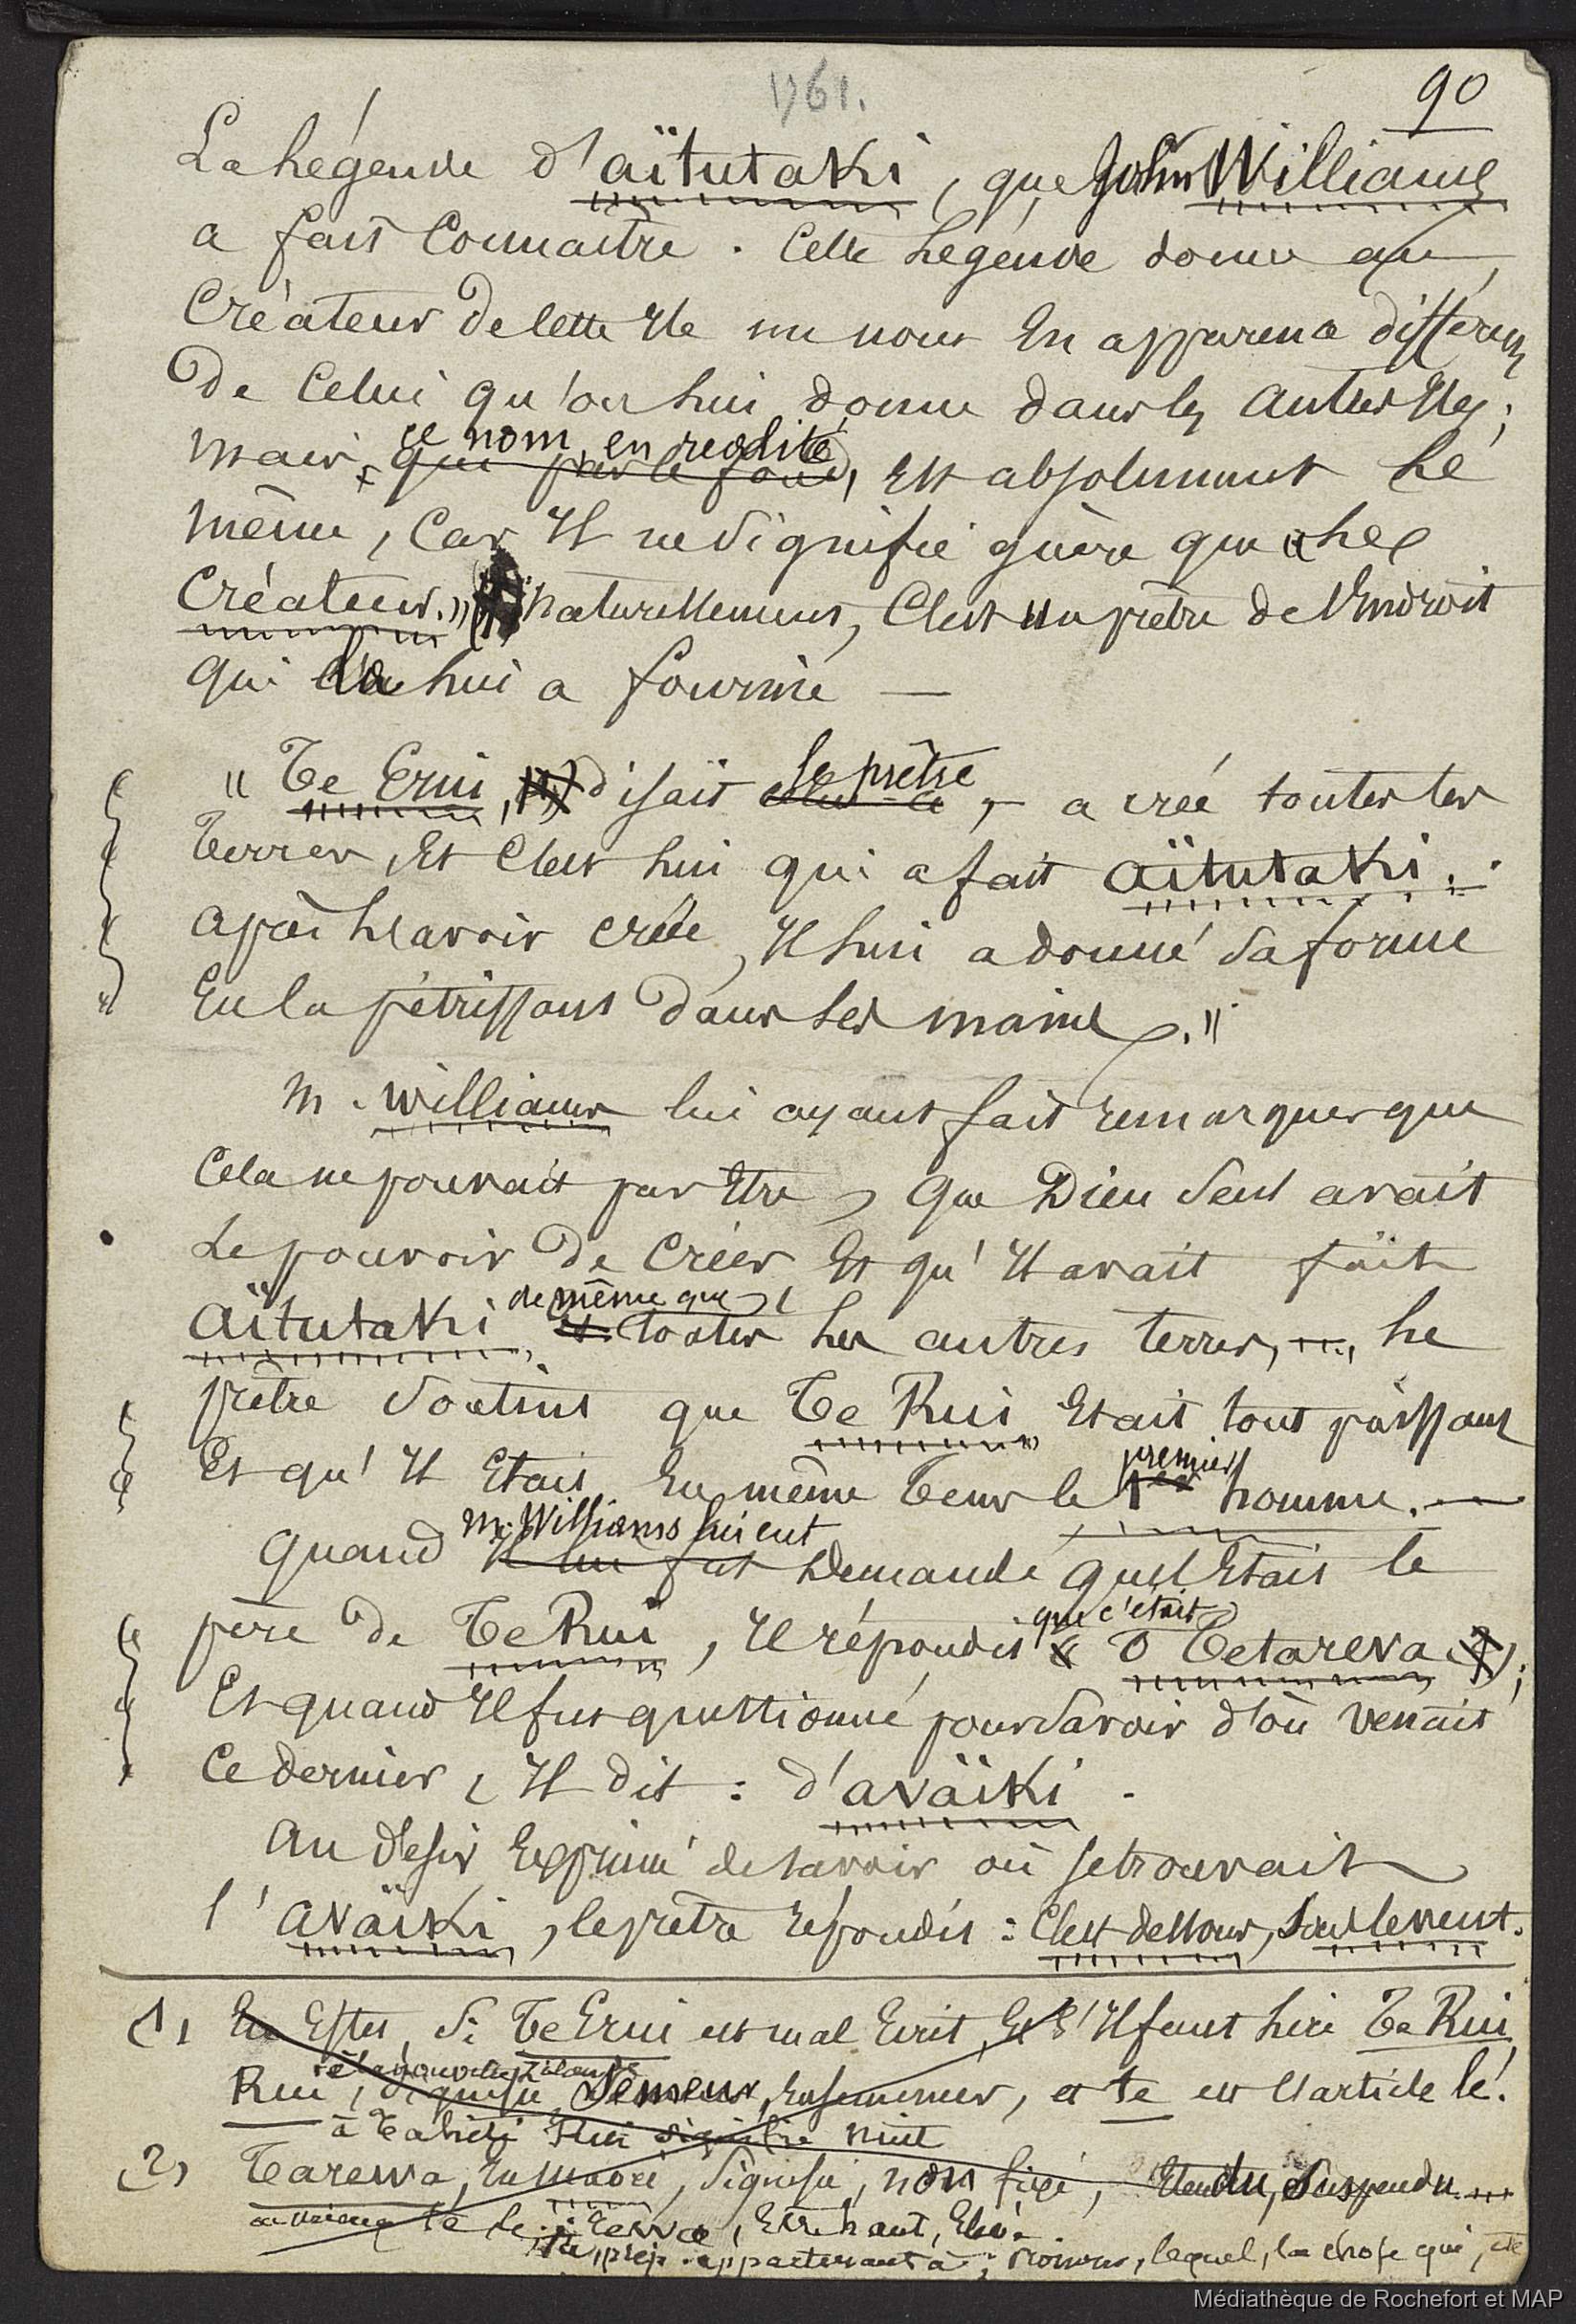 1761.
90
La Légende d'aïtutaki, que John Williams
a fait connaître. Cette Légende donne au
Créateur de cette Ile un nom En apparence différent
de Celui qu'on lui donne dans les autres Iles;
mais ce nom, en realité, est absolument le
même, Car Il ne signifie guère que "Le
Créateur." Naturellement, C'est un prêtre de l'Endroit
qui la lui a fournie —
" Te Erui, disait le prêtre, — a créé toutes les
Terres, Et C'est lui qui a fait aïtutaki.
après l'avoir créée, Il lui a donné sa forme
En la pétrissant dans ses mains."
M. Williams lui ayant fait remarquer que
Cela ne pouvait pas Etre, que Dieu Seul avait
Le pouvoir de Créer, Et qu'Il avait fait
aïtutaki de même que toutes les autres terres, —, le
prêtre soutint que Te Rui Etait tout puissant
Et qu'Il Etait En même tems le premier homme. —
Quand M. Williams lui eut demandé quel Etait le
père de Te Rui, Il répondit que c'était O Tetareva;
Et quand Il fut questionné pour savoir d'où venait
Ce dernier, Il dit : d'avaïki.
au désir Exprimé de savoir où se trouvait
l'avaïki, le prêtre répondit : C'est dessous, seulement.
(1) Te Erui est mal Ecrit, Il faut lire Te Rui
Rui, à la nouvelle Zélande, signifie Semeur, Ensemencer, et te est l'article le.
à Tahiti Rui signifie nuit
(2) Tarewa, En maori, signifie, non fixé, Etendu, Suspendu
rewa, Etre haut, Elevé.
prép. appartenant à; pronom, lequel, la chose qui,
Médiathèque de Rochefort et MAP